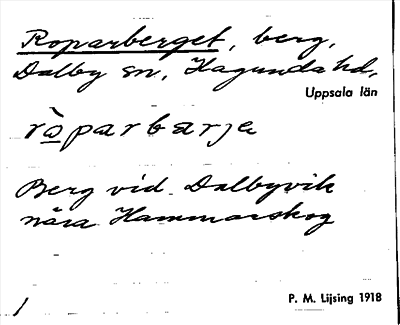 Roparberget, berg,
Dalby sn, Hagunda hd,
Uppsala län
ròparbarja
Berg vid Dalbyvik
nära Hammarskog
P. M. Lijsing 1918